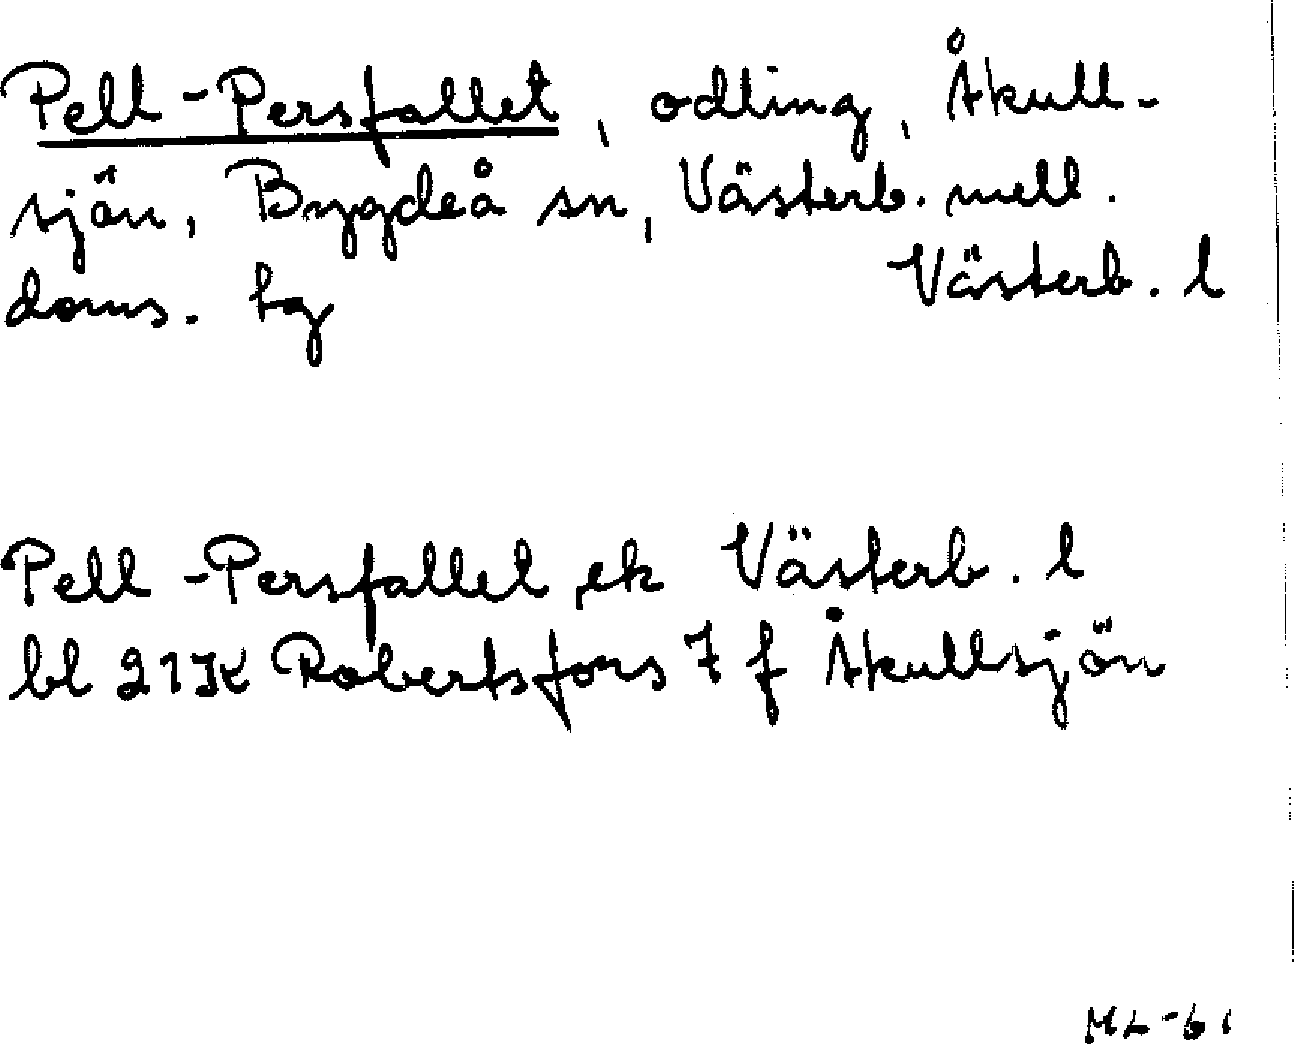 Pell-Persfallet, odling, Åkull-
sjön, Bygdeå sn, Västerb. mell.
doms. hg Västerb. l
Pell-Persfallet, ek Västerb. l
bl 21K Robertsfors 7 f Åkullsjön
ML-61